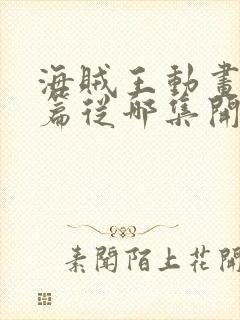 海賊王動畫
篇從哪集開
素聞陌上花開